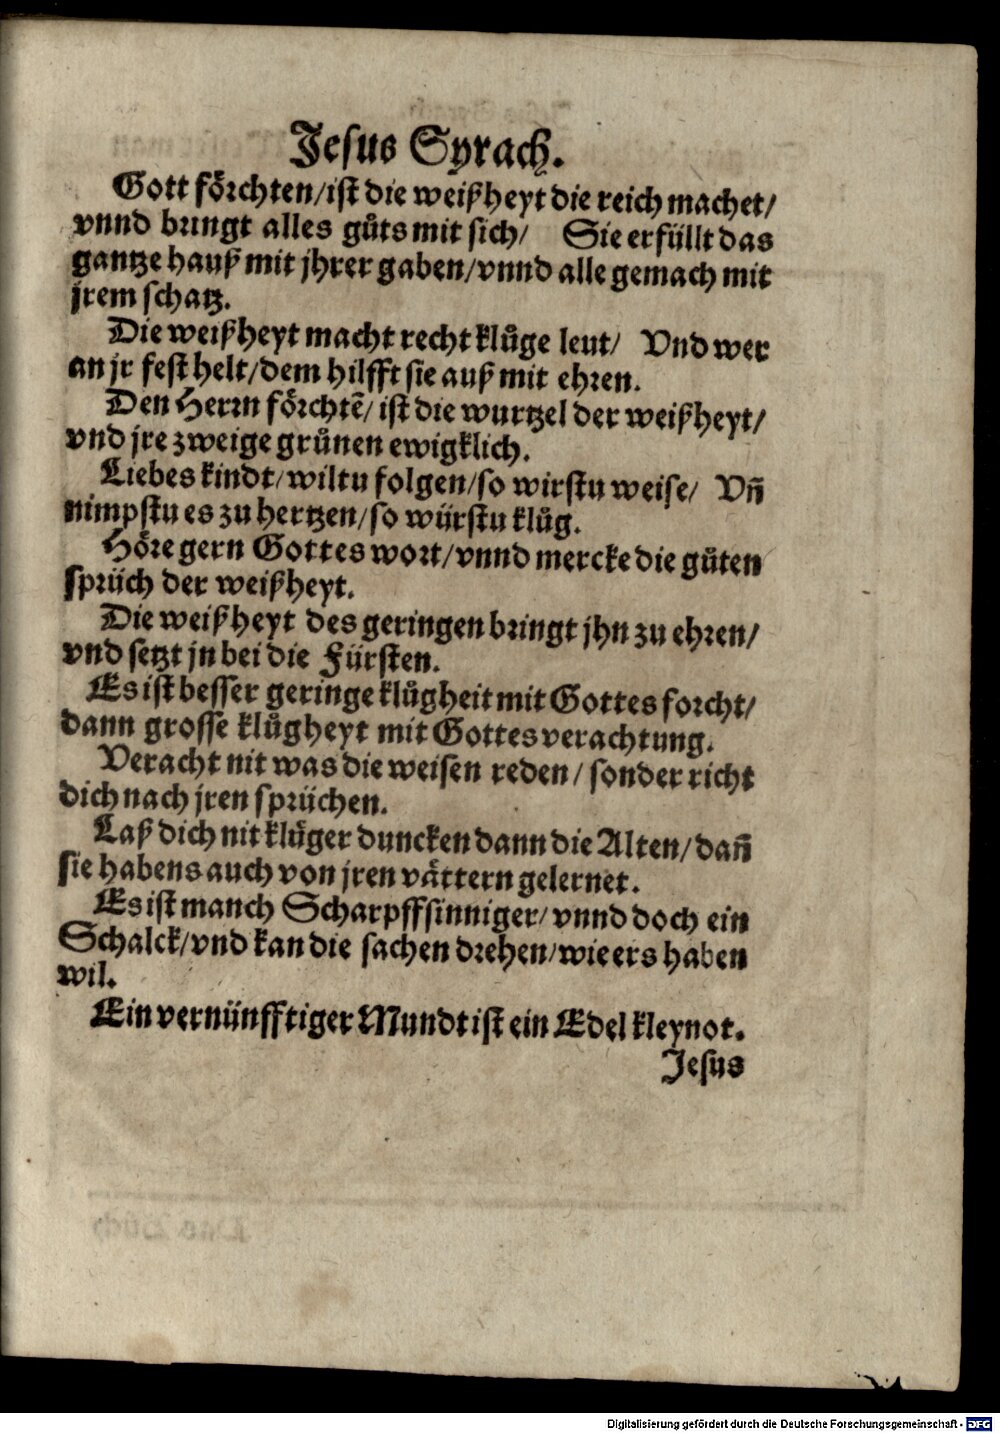 Jesus Syrach.
Gott förchten/ist die weißheyt die reich machet/
vnnd bringt alles gůts mit sich/ Sie erfüllt das
gantze hauß mit jhrer gaben/vnnd alle gemach mit
jrem schatz.
Die weißheyt macht recht klůge leut/ Vnd wer
an jr fest helt/dem hilfft sie auß mit ehren.
Den Herrn förchtẽ/ ist die wurtzel der weißheyt/
vnd jre zweige grůnen ewigklich.
Liebes kindt/wiltu folgen/so wirstu weise/ Vñ
nimpstu es zu hertzen/so würstu klůg.
Höre gern Gottes wort/vnnd mercke die gůten
sprüch der weißheyt.
Die weißheyt des geringen bringt jhn zu ehren/
vnd setzt jn bei die Fürsten.
Es ist besser geringe klůgheit mit Gottes forcht/
dann grosse klůgheyt mit Gottes verachtung.
Veracht nit was die weisen reden/ sonder richt
dich nach jren sprüchen.
Laß dich nit klůger duncken dann die Alten/dañ
sie habens auch von jren vättern gelernet.
Es ist manch Scharpffsinniger/vnnd doch ein
Schalck/vnd kan die sachen drehen/wie ers haben
wil.
Ein vernünfftiger Mundt ist ein Edel kleynot.
Jesus
Digitalisierung gefördert durch die Deutsche Forschungsgemeinschaft - DFG